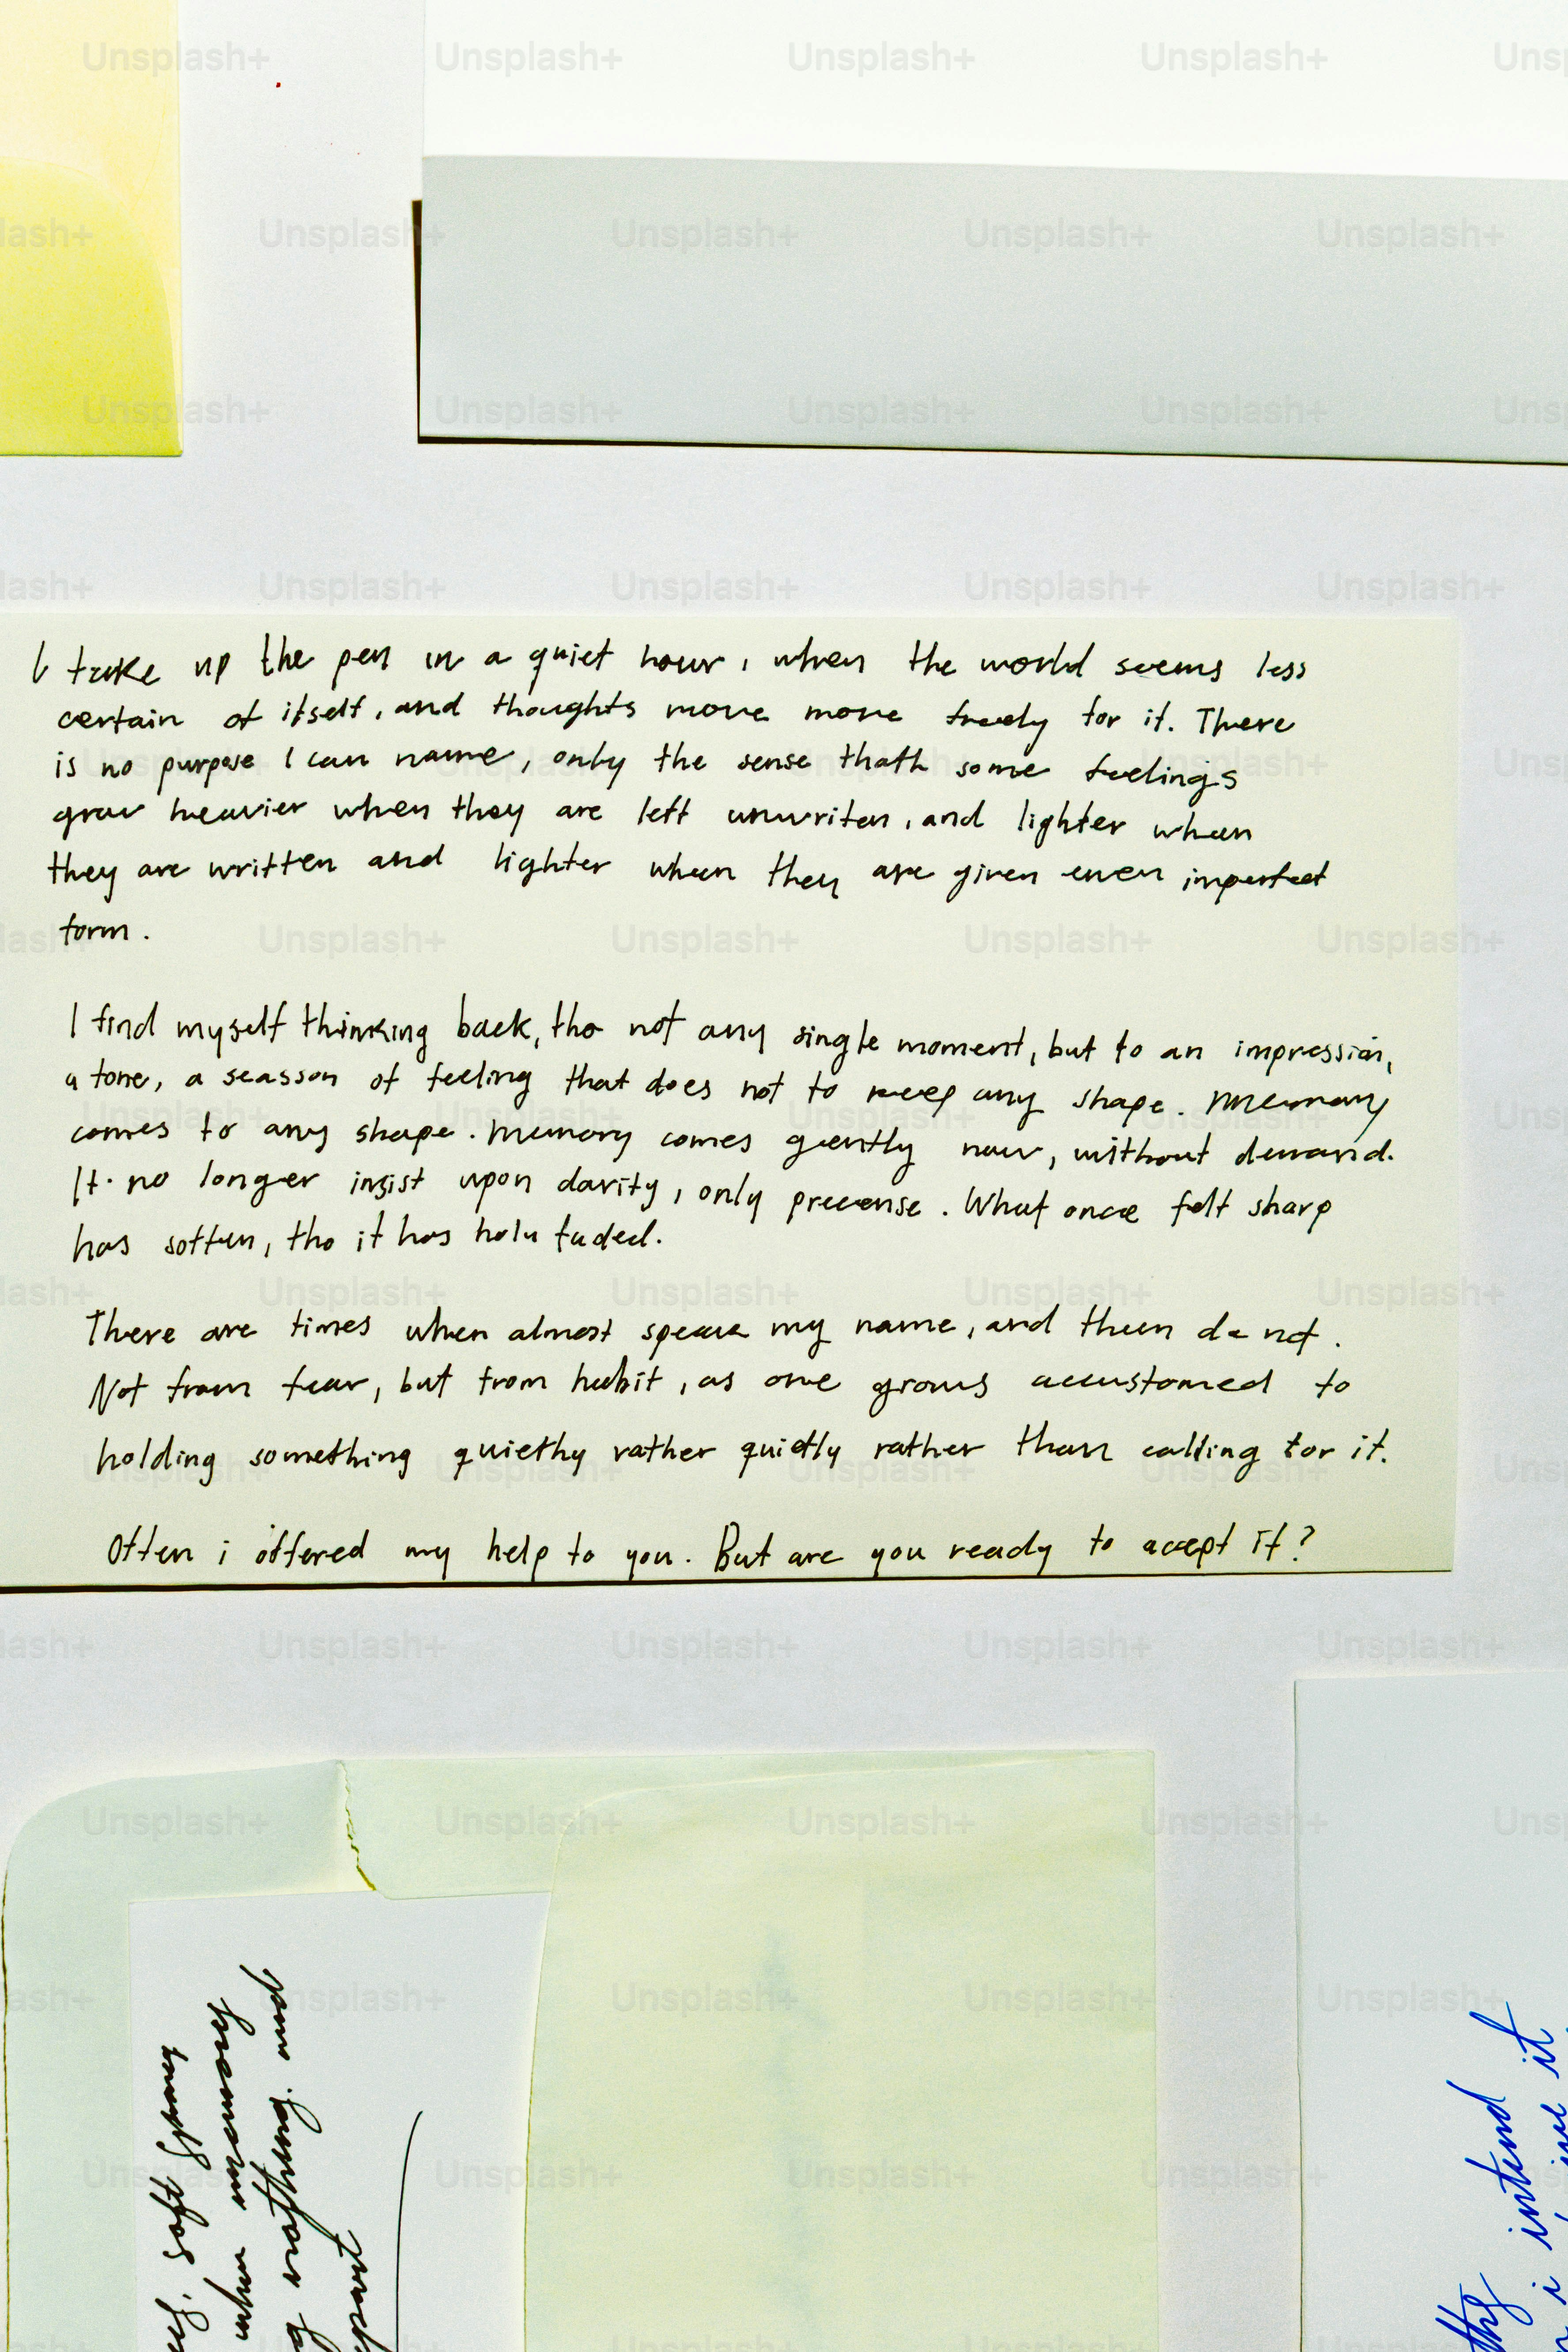 I take up the pen in a quiet hour, when the world seems less
certain of itself, and thoughts move more freely for it. There
is no purpose I can name, only the sense thath some feelings
grow heavier when they are left unwriten, and lighter when
they are written and lighter when they are given even imperfect
form.
I find myself thinking back, tho not any single moment, but to an impression,
a tone, a seasson of feeling that does not to keep any shape. Memory
comes to any shape. Memory comes gently now, without demand.
It no longer insist upon clarity, only precense. What once felt sharp
has soften, tho it has faded.
There are times when almost speak my name, and then do not.
Not from fear, but from habit, as one grows accustomed to
holding something quiethy rather quietly rather than calling for it.
Often i offered my help to you. But are you ready to accept it?
soft
when memory
nothing. and
intend it
i
Unsplash+